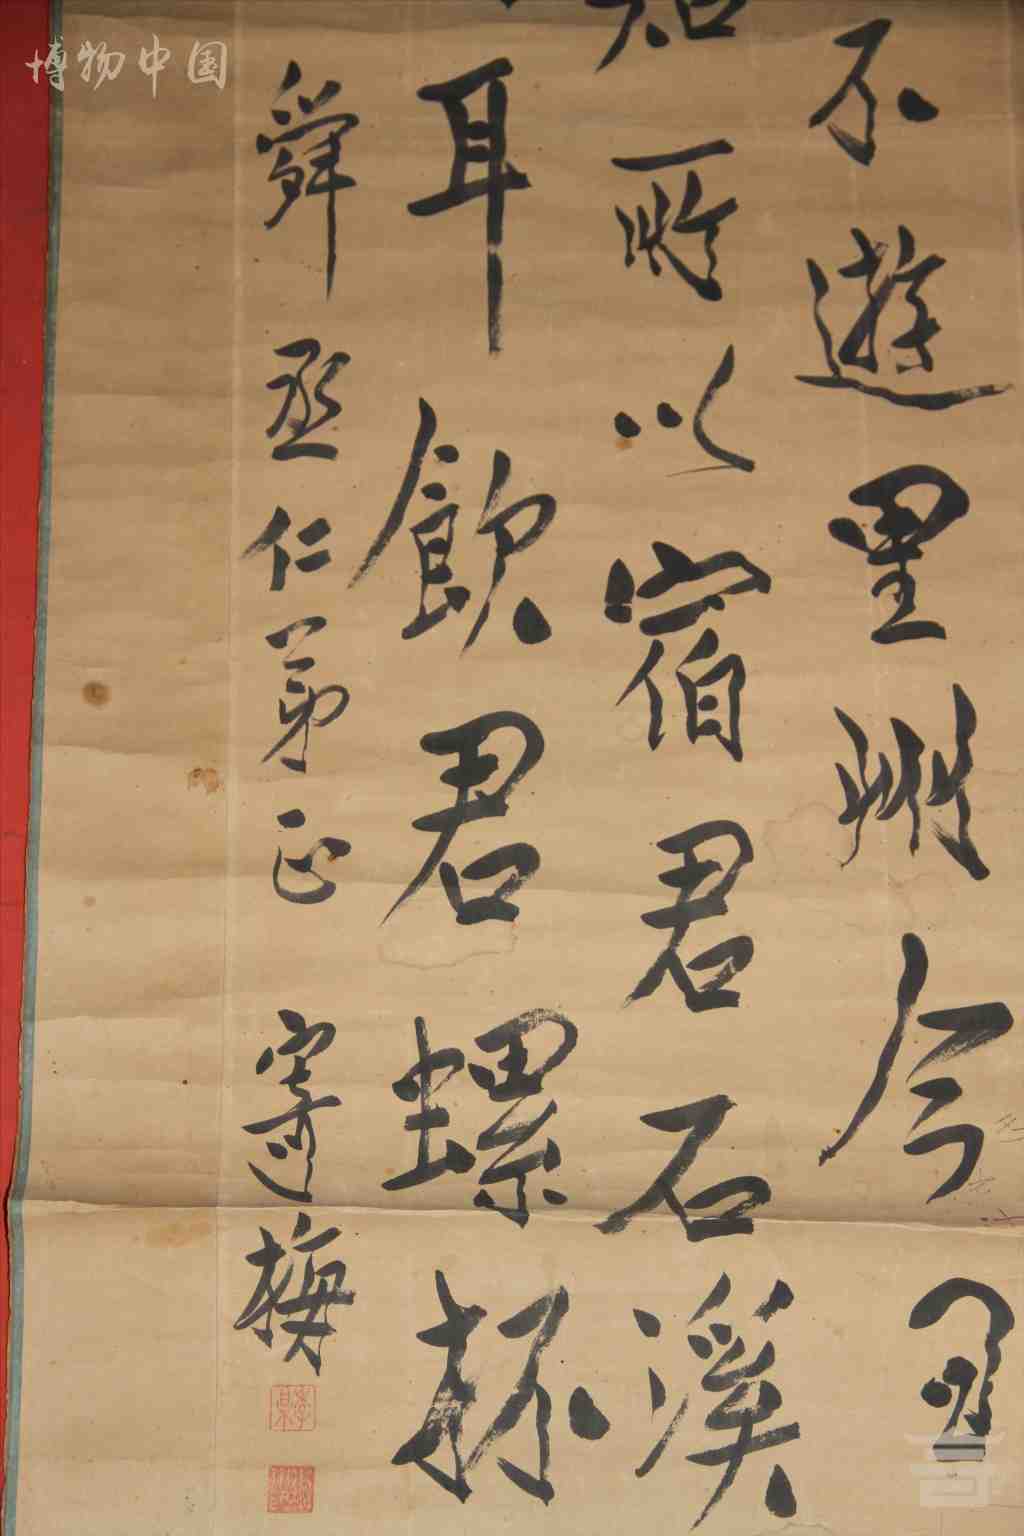 博物中国
不遊里州今
所以宿君石溪
耳飲君螺杯
舜丞仁弟正
寄遁梅